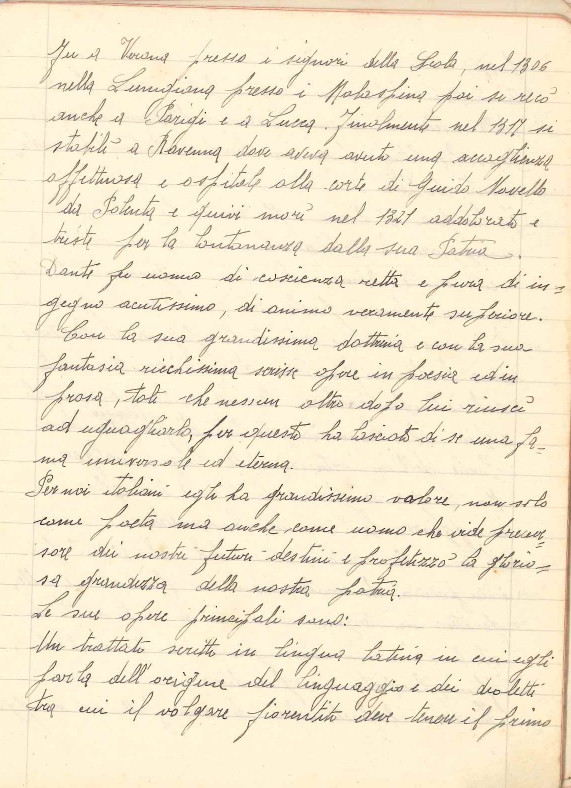 Fu a Verona presso i signori della Scala, nel 1306
nella Lunigiana presso i Malaspina poi si recò
anche a Parigi e a Lucca. Finalmente nel 1317 si
stabilì a Ravenna dove aveva avuto una accoglienza
affettuosa e ospitale alla corte di Guido Novello
da Polenta e quivi morì nel 1321 addolorato e
triste per la lontananza dalla sua Patria.
Dante fu uomo di coscienza retta e pura di in=
gegno acutissimo, di animo veramente superiore.
Con la sua grandissima dottrina e con la sua
fantasia ricchissima scrisse opere in poesia ed in
prosa, tali che nessun altro dopo lui riuscì
ad uguagliarlo, per questo ha lasciato di se una fa=
ma universale ed eterna.
Per noi italiani egli ha grandissimo valore, non solo
come poeta ma anche come uomo che vide precur=
sore dei nostri futuri destini e profetizzò la glorio=
sa grandezza della nostra patria.
Le sue opere principali sono:
Un trattato scritto in lingua latina in cui egli
parla dell'origine del linguaggio e dei dialetti
tra cui il volgare fiorentito deve tenere il primo